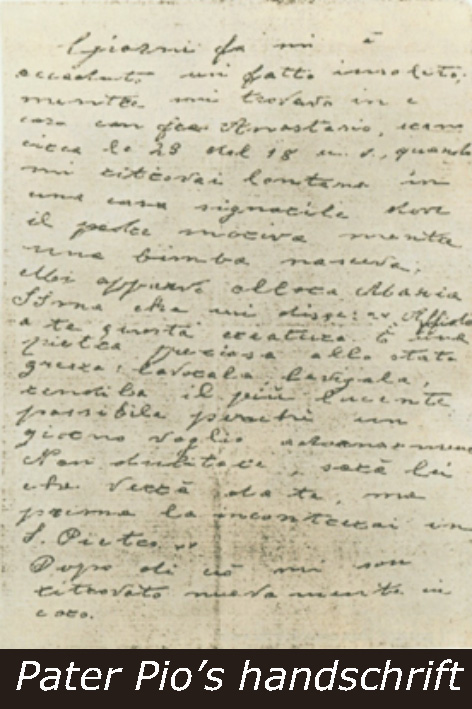 giorni fa mi è
accaduto un fatto insolito;
mentre mi trovavo in
coro con fra Anastasio, erano
circa le 23 del 18 u. s., quando
mi ritrovai lontano in
una casa signorile dove
il padre moriva mentre
una bimba nasceva.
Mi apparve allora Maria
SS.ma che mi disse: «Affido
a te questa creatura. È una
pietra preziosa allo stato
grezzo: lavorala, levigala,
rendila il più lucente
possibile perché un
giorno voglio adornarmene
Non dubitare, sarà lei
che verrà da te, ma
prima la incontrerai in
S. Pietro».
Dopo di ciò mi son
ritrovato nuovamente in
coro.
Pater Pio’s handschrift